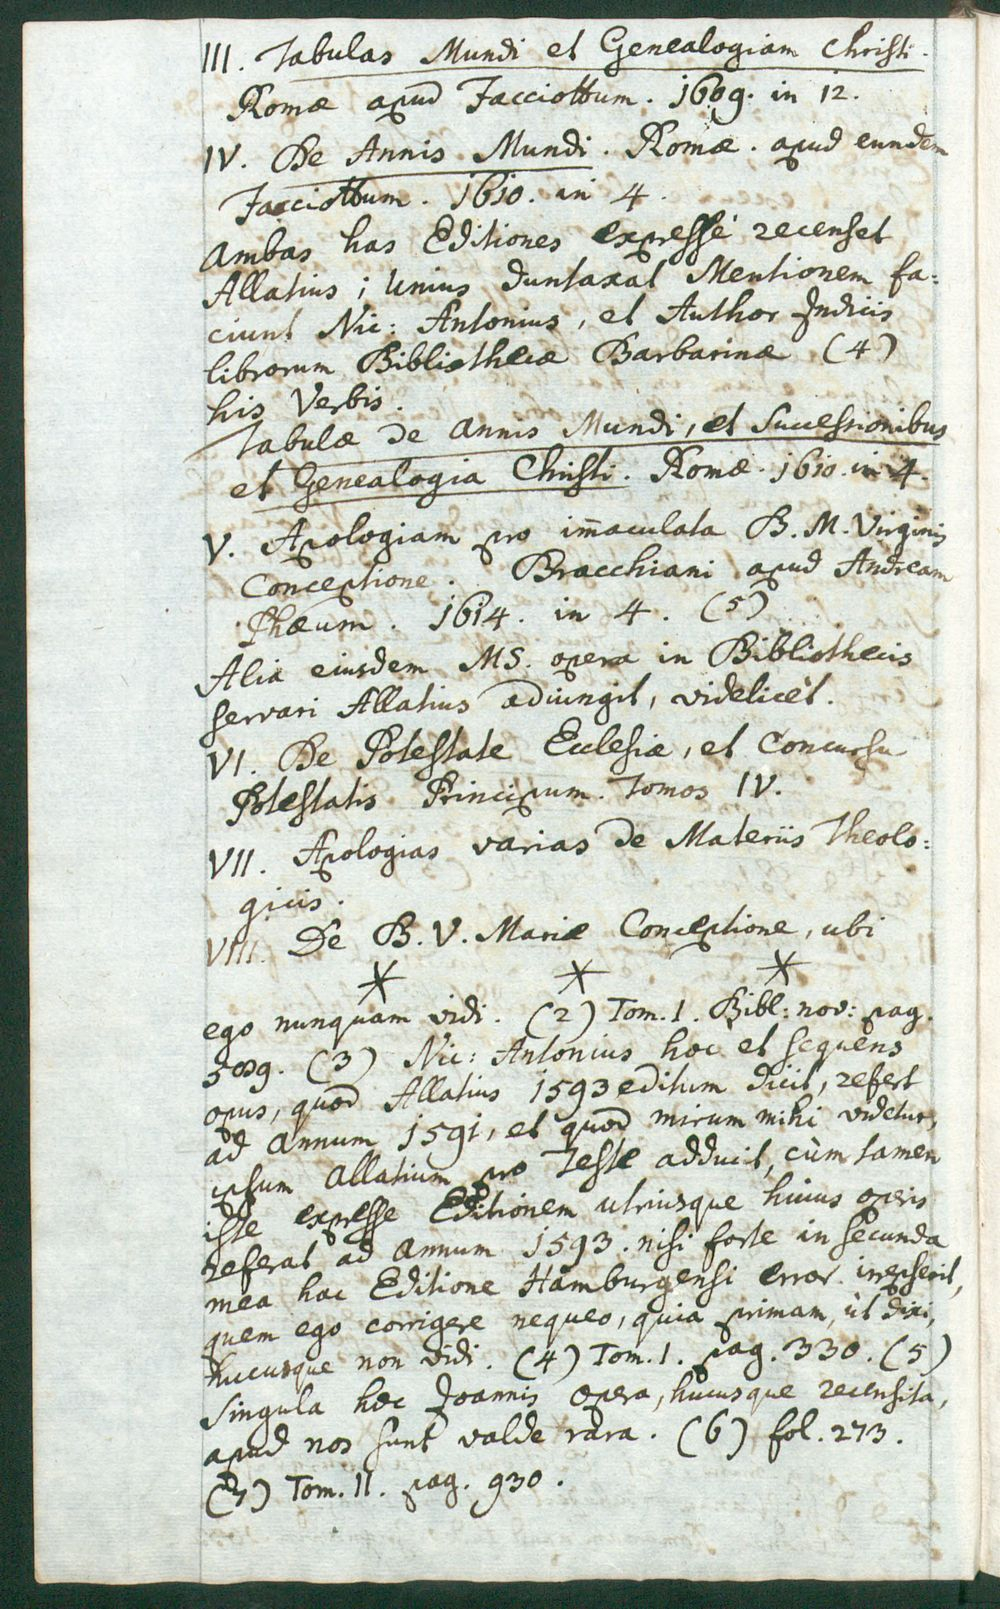 III. Tabulas Mundi et Genealogiam Christi.
Romæ apud Facciottum. 1609. in 12.
IV. De Annis Mundi. Romæ. apud eundem
Facciottum. 1610. in 4.
Ambas has Editiones expressè recenset
Allatius; Unius duntaxat Mentionem fa:
ciunt Nic: Antonius, et Author Indicis
librorum Bibliothecæ Barbarinæ (4)
his Verbis.
Tabulæ de annis Mundi, et Successionibus
et Genealogia Christi. Romæ. 1610. in 4.
V. Apologiam pro im̄aculata B. M. Virginis
Conceptione. Bracchiani apud Andream
Phæum. 1614. in 4. (5)
Alia eiusdem MS. opera in Bibliothecis
servari Allatius adiungit, videlicèt.
VI. De Potestate Ecclesiæ, et Concursu
Potestatis Principum. Tomos IV.
VII. Apologias varias de Materiis Theolo:
gicis.
VIII. De B. V. Mariæ Conceptione, ubi
* * *
ego nunquam vidi. (2) Tom. I. Bibl: nov: pag.
509. (3) Nic: Antonius hoc et sequens
opus, quod Allatius 1593 editum dicit, refert
ad annum 1591, et quod mirum mihi videtur,
ipsum Allatium pro Teste adducit, cùm tamen
iste expresse Editionem utriusque huius operis
referat ad annum 1593. nisi forte in secunda
mea hac Editione Hamburgensi error irrepserit,
quem ego corrigere nequeo, quia primam, ùt dixi,
hucusque non vidi. (4) Tom. I. pag. 330. (5)
Singula hæc Joannis opera, hucusque recensita,
apud nos sunt valde rara. (6) fol. 273.
(7) Tom. II. pag. 930.